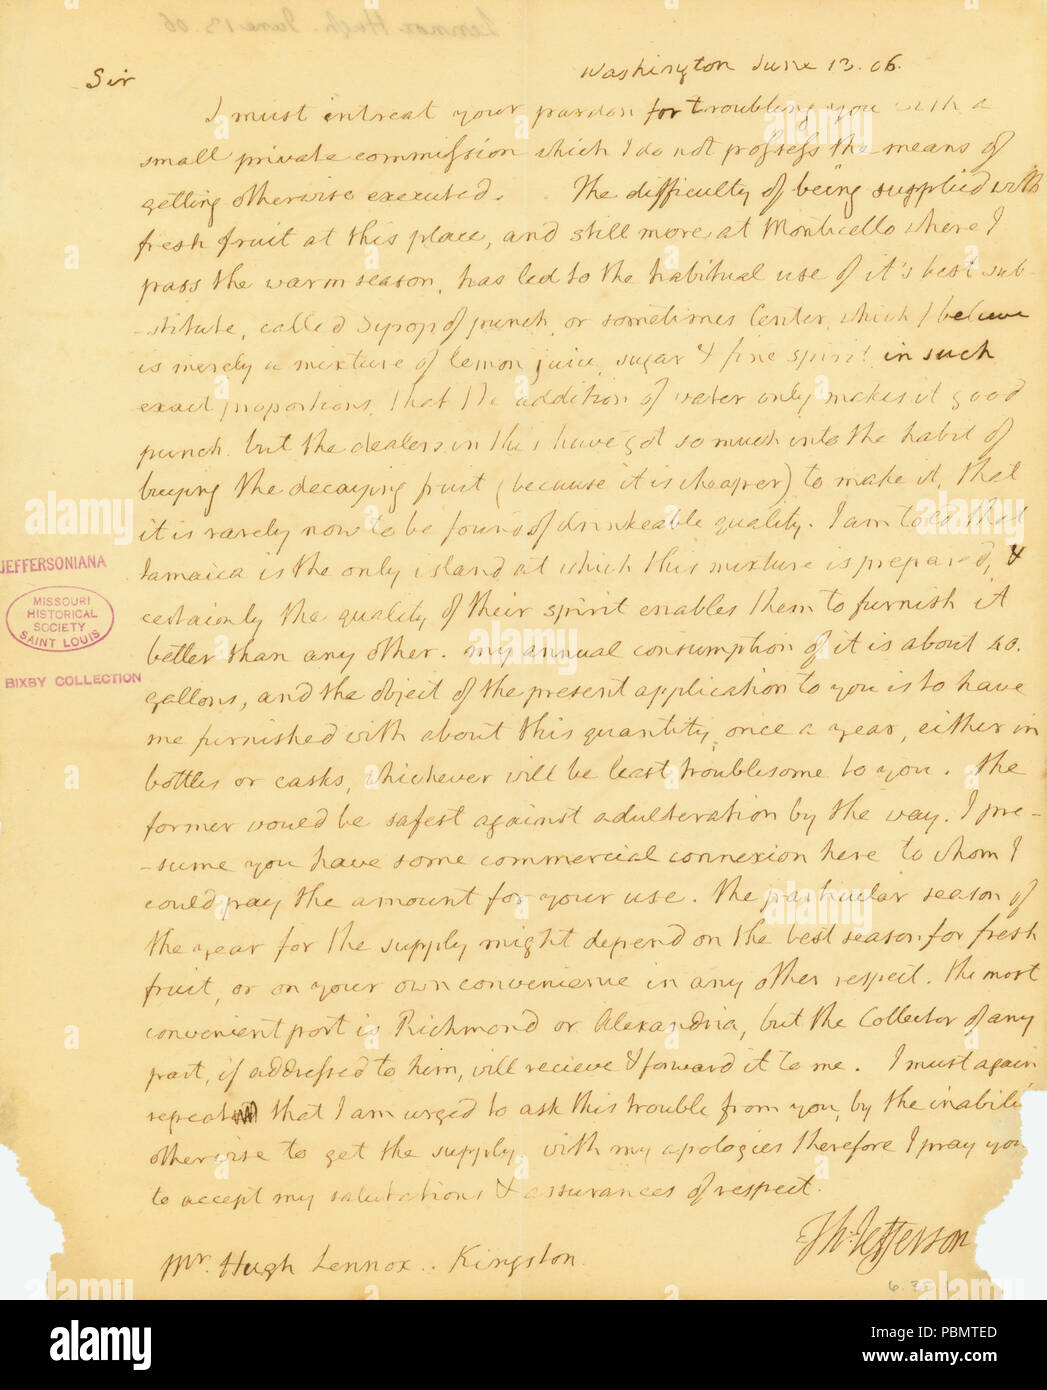 Lennox Hugh. June 13. 06
Washington June 13. 06.
Sir
I must intreat your pardon for troubling you with a
small private commission which I do not possess the means of
getting otherwise executed. The difficulty of being supplied with
fresh fruit at this place, and still more at Monticello where I
pass the warm season, has led to the habitual use of it's best sub-
-stitute, called Syrop of punch, or sometimes Center, which I believe
is merely a mixture of lemon juice, sugar & fine spirit in such
exact proportions, that the addition of water only makes it good
punch. but the dealers in this have got so much into the habit of
buying the decaying fruit (because it is cheaper) to make it, that
it is rarely now to be found of drinkeable quality. I am told that
Jamaica is the only island at which this mixture is prepared, &
certainly the quality of their spirit enables them to furnish it
better than any other. my annual consumption of it is about 40.
gallons, and the object of the present application to you is to have
me furnished with about this quantity, once a year, either in
bottles or casks, whichever will be least troublesome to you. the
former would be safest against adulteration by the way. I pre-
-sume you have some commercial connexion here to whom I
could pay the amount for your use. the particular season of
the year for the supply might depend on the best season for fresh
fruit, or on your own convenience in any other respect. the most
convenient port is Richmond or Alexandria, but the Collector of any
port, if addressed to him, will recieve & forward it to me. I must again
repeat that I am urged to ask this trouble from you, by the inabili
otherwise to get the supply. with my apologies therefore I pray you
to accept my salutations & assurances of respect.
Th: Jefferson
Mr. Hugh Lennox.. Kingston.
JEFFERSONIANA
MISSOURI
HISTORICAL
SOCIETY
SAINT LOUIS
BIXBY COLLECTION
alamy
Image ID: PBMTED
www.alamy.com